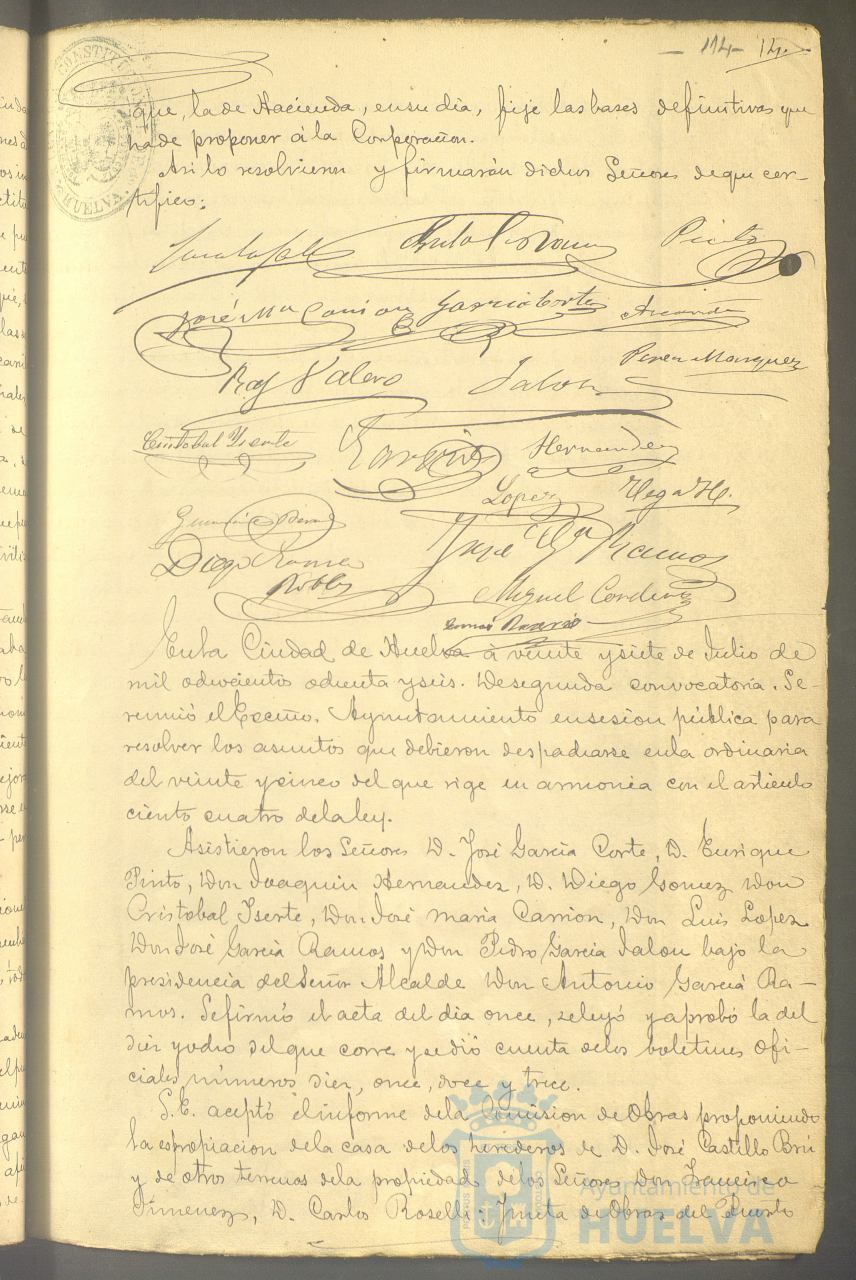 - 114 - 14.
CONSTITUCION
HUELVA
que, la de Hacienda, en su dia, fije las bases definitivas que
ha de proponer á la Corporacion.
Asi lo resolvieron y firmarán dichos Señores de que cer-
tifico:
Pinto
José Ma Carrion Garcia Corte
Perez Marquez
Raf Valero Jalon
Cristobal Yserte Garcia Hernandez
Lopez Vega H.
Diego Gomez José Ga Ramos
Robles Miguel Cordero
Rosario
En la Ciudad de Huelva á veinte y siete de Julio de
mil ochocientos ochenta y seis. De segunda convocatoria. Se
reunió el Excmo. Ayuntamiento en sesion pública para
resolver los asuntos que debieron despacharse en la ordinaria
del veinte y cinco del que rige en armonia con el articulo
ciento cuatro de la ley.
Asistieron los Señores D. José Garcia Corte, D. Enrique
Pinto, Don Joaquin Hernandez, D. Diego Gomez Don
Cristobal Iserte, Don José maria Carrion, Don Luis Lopez
Don José Garcia Ramos y Don Pedro Garcia Jalon bajo la
presidencia del Señor Alcalde Don Antonio Garcia Ra-
mos. Se firmó el acta del dia once, se leyó y aprobó la del
diez y ocho del que corre y se dió cuenta de los boletines ofi-
ciales números diez, once, doce y trece.
S. E. aceptó el informe de la Comision de Obras proponiendo
la espropiacion de la casa de los herederos de D. José Castillo Brú
y de otros terrenos de la propiedad de los Señores Don Francisco
Jimenez, D. Carlos Roselli y Junta de Obras del Puerto
Ayuntamiento de
HUELVA